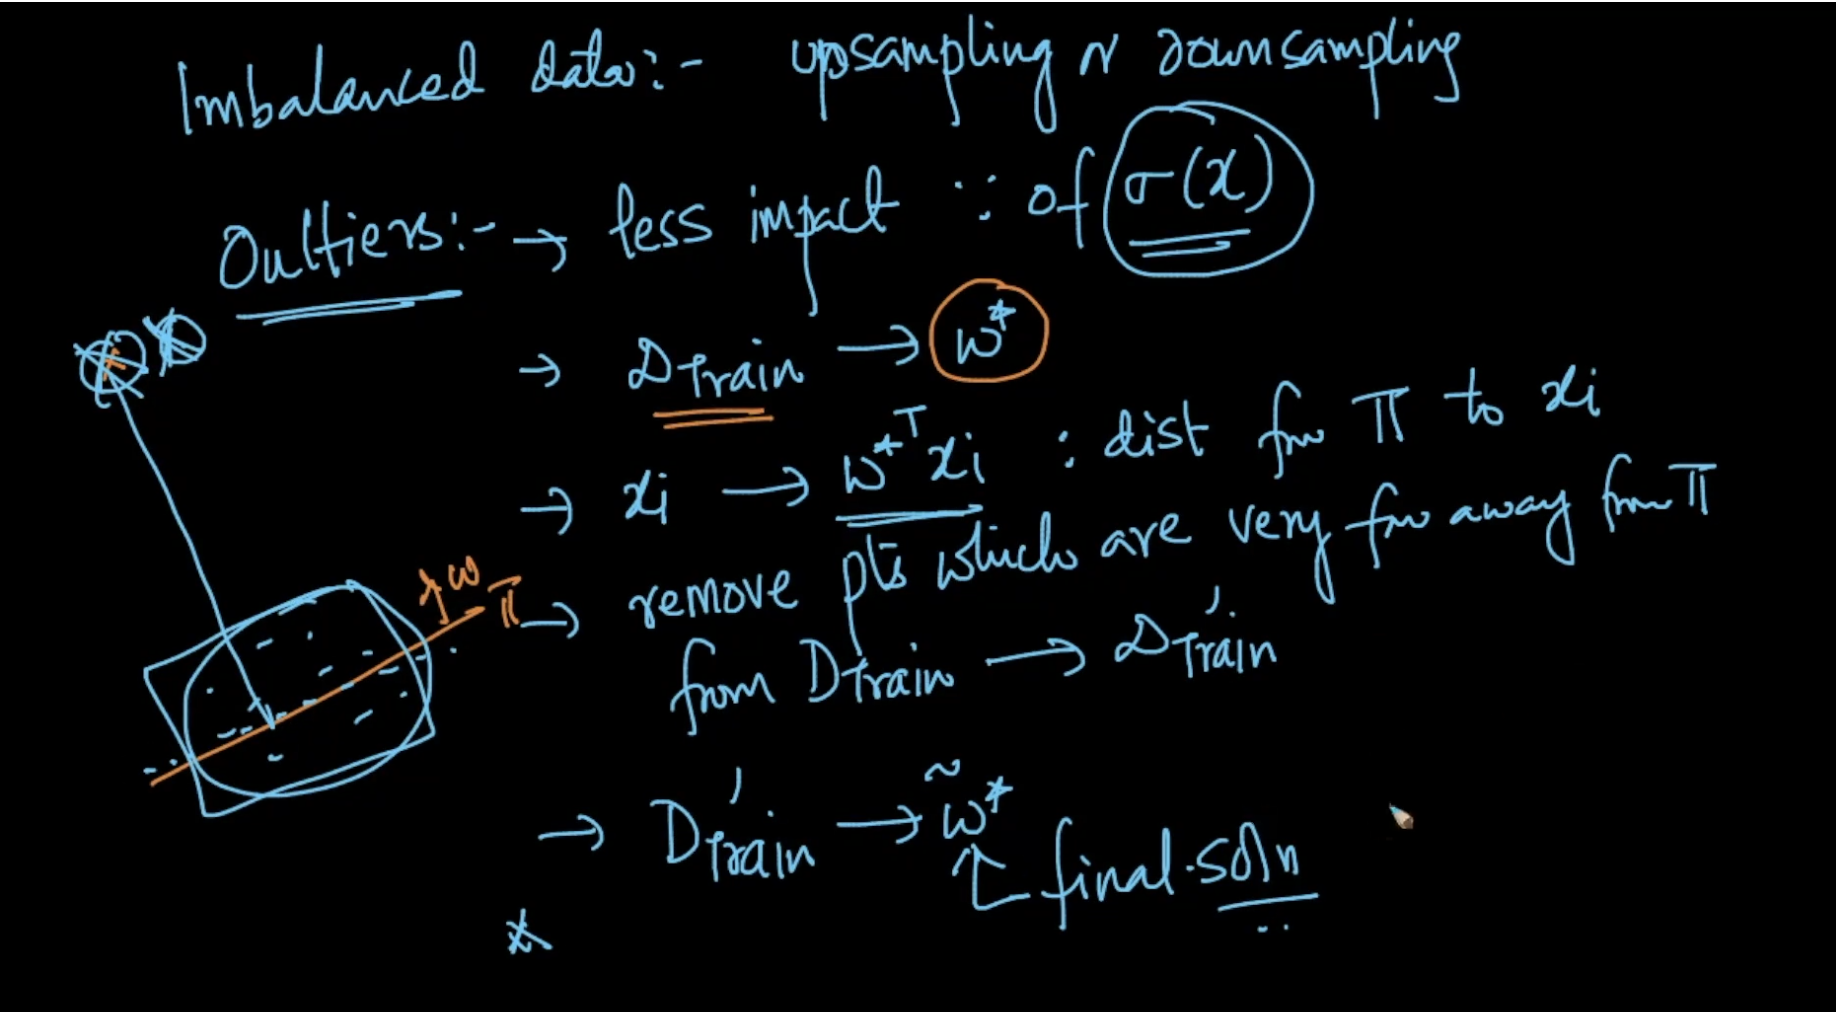 Imbalanced data:- upsampling or downsampling
Outliers:- → less impact ∵ of σ(x)
→ DTrain → w*
→ xi → w*ᵀxi : dist from π to xi
→ remove pts which are very far away from π
from DTrain → D'Train
→ D'Train → w̃*
↑ final soln
w π
*